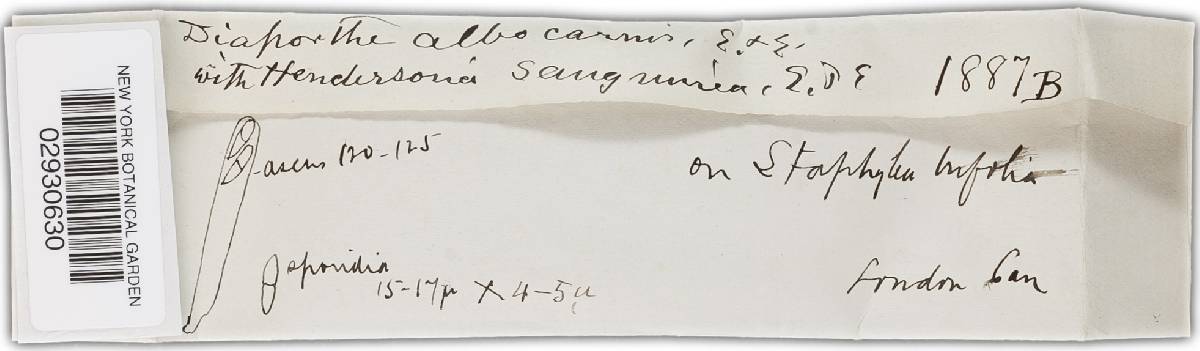 Diaporthe albocarnis, E. & E.
with Hendersonia sanguinea, E. & E
1887 B
ascus 120-125
on Staphylea trifolia
sporidia
15-17µ X 4-5µ
London Can
NEW YORK BOTANICAL GARDEN
02930630